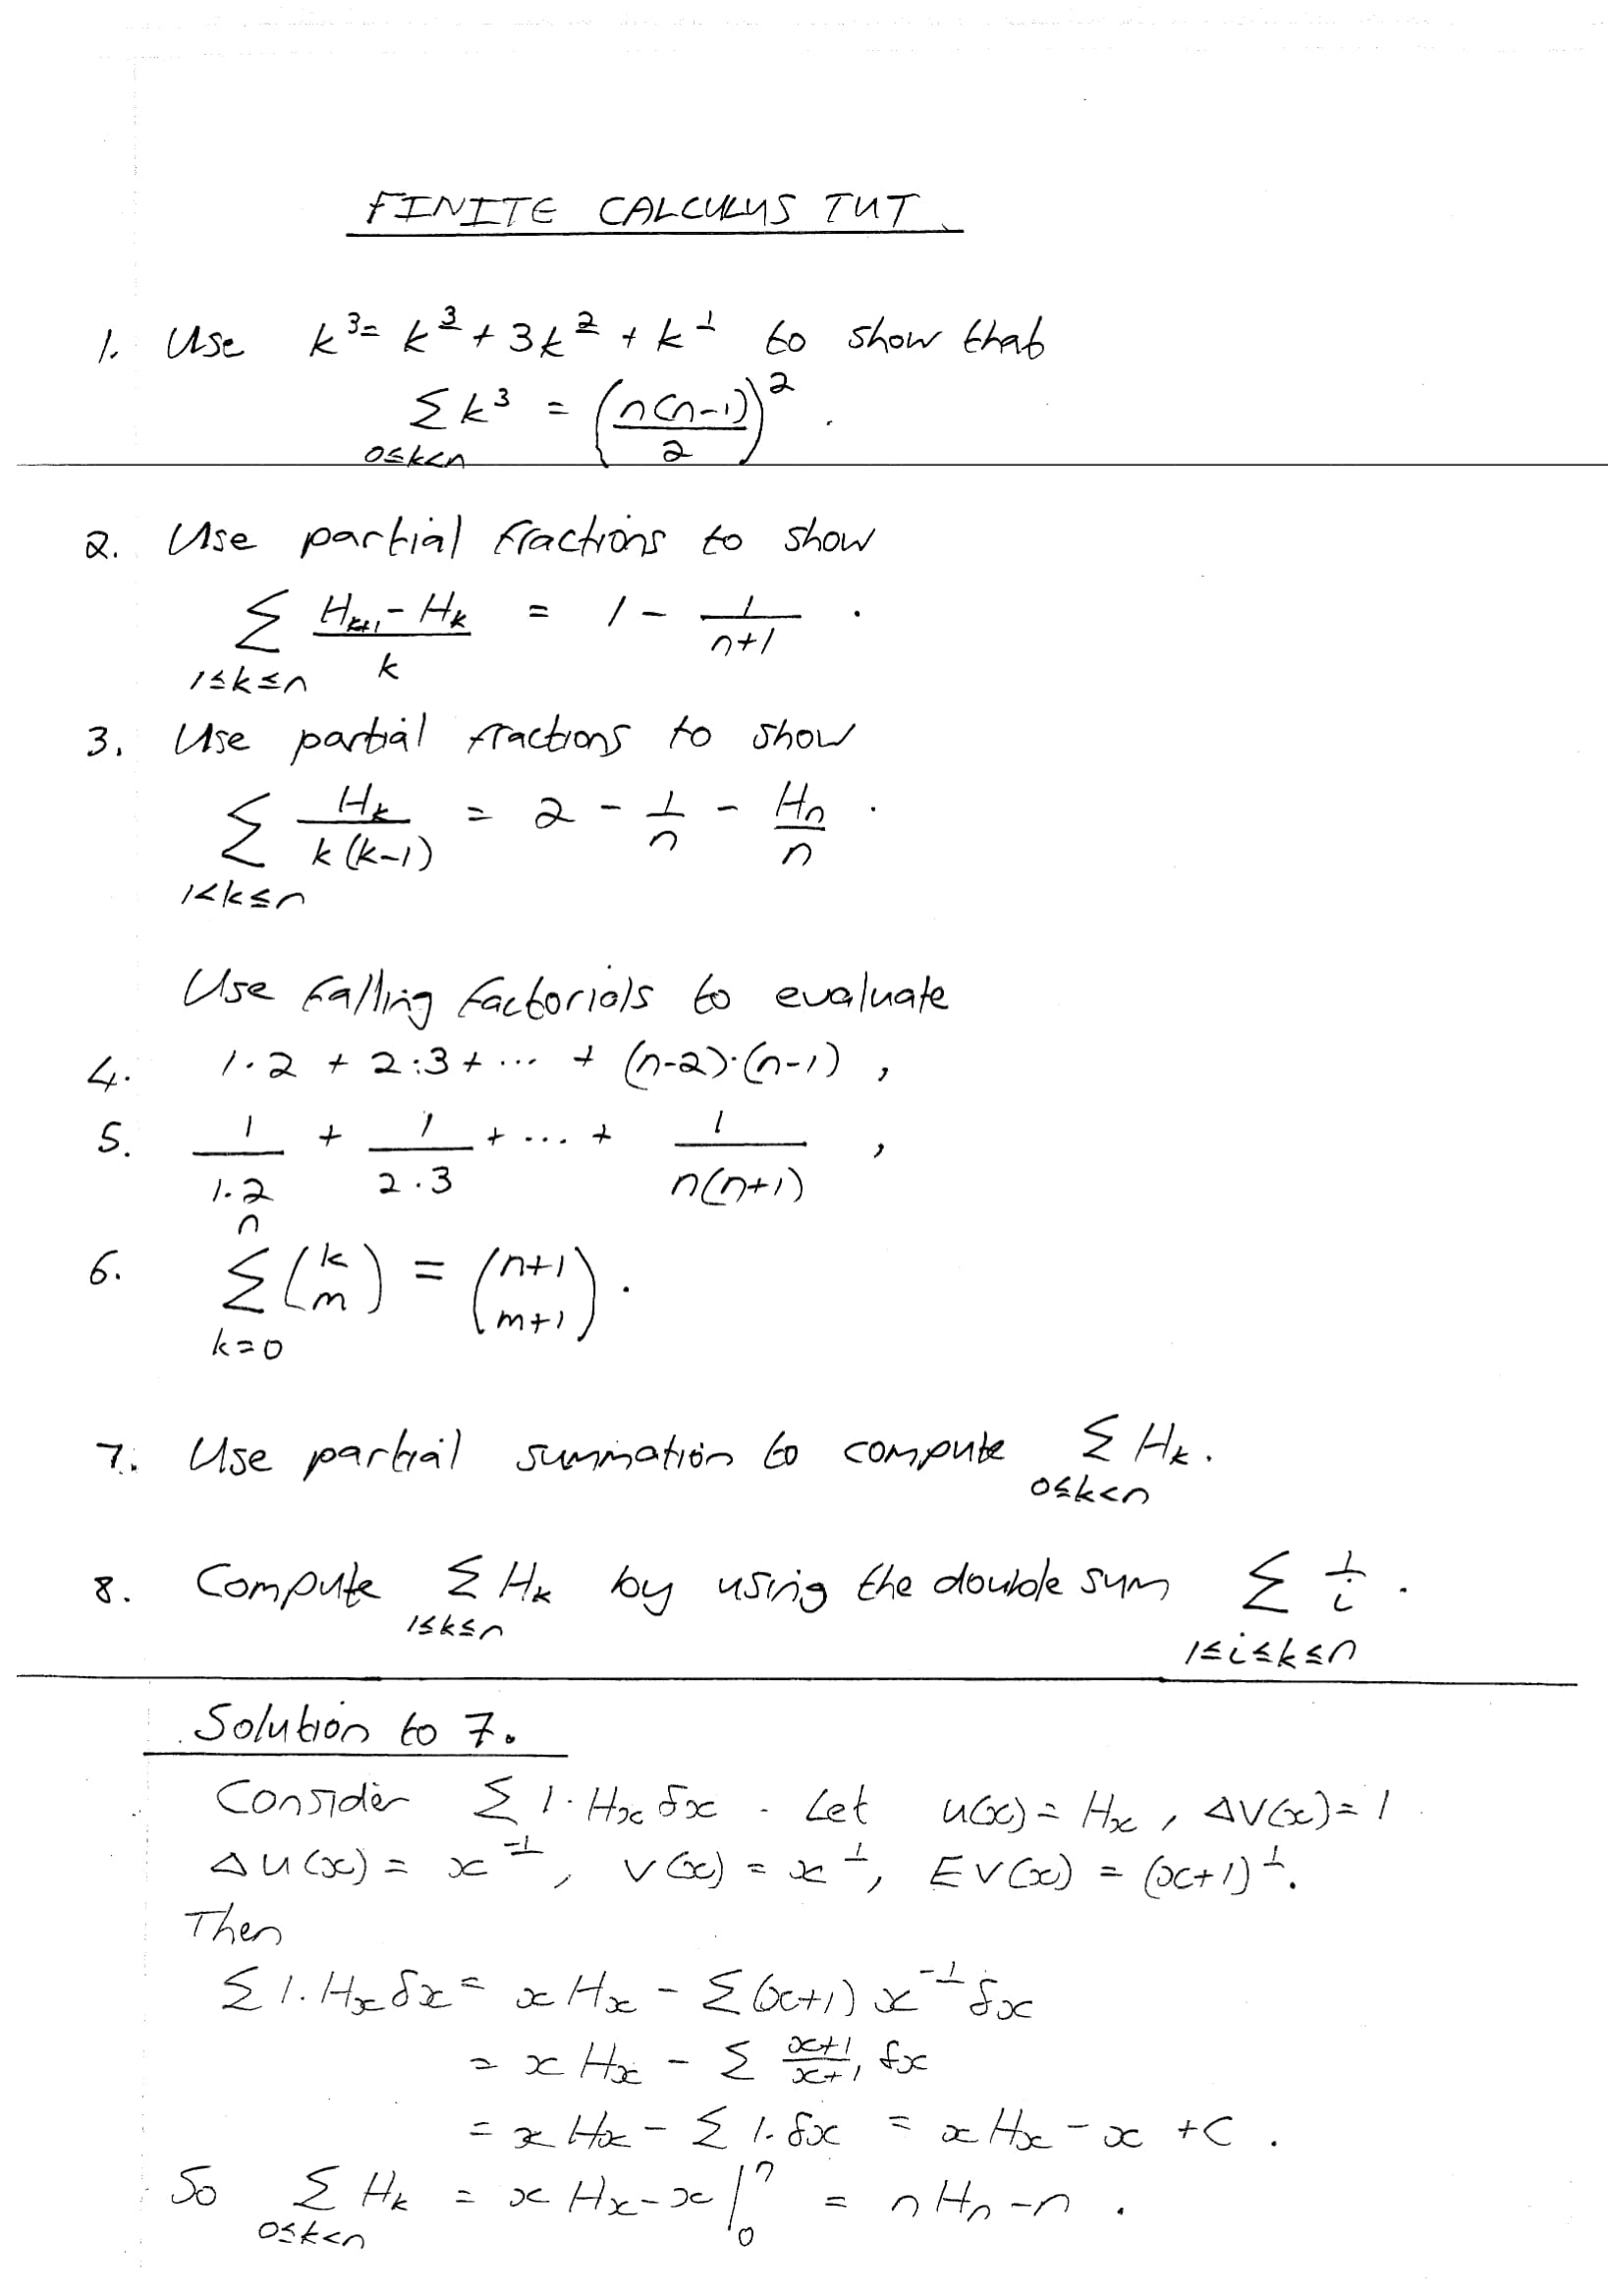 FINITE CALCULUS TUT.
1. Use k³ = k^{\underline{3}} + 3k^{\underline{2}} + k^{\underline{1}} to show that
Σ k³ = (n(n-1)/2)² .
0≤k<n
2. Use partial fractions to show
Σ (H_{k+1} - H_k)/k = 1 - 1/(n+1) .
1≤k≤n
3. Use partial fractions to show
Σ H_k/(k(k-1)) = 2 - 1/n - H_n/n .
1<k≤n
Use falling factorials to evaluate
4. 1·2 + 2·3 + ... + (n-2)·(n-1) ,
5. 1/(1·2) + 1/(2·3) + ... + 1/(n(n+1)) ,
6. Σ_{k=0}^{n} \binom{k}{m} = \binom{n+1}{m+1} .
7. Use partial summation to compute Σ H_k .
0≤k<n
8. Compute Σ H_k by using the double sum Σ 1/i .
1≤k≤n 1≤i≤k≤n
Solution to 7.
Consider Σ 1·H_x δx . Let u(x) = H_x , Δv(x) = 1
Δu(x) = x^{\underline{-1}} , v(x) = x^{\underline{1}} , Ev(x) = (x+1)^{\underline{1}} .
Then
Σ 1.H_x δx = x H_x - Σ (x+1) x^{\underline{-1}} δx
= x H_x - Σ (x+1)/(x+1) δx
= x H_x - Σ 1. δx = x H_x - x + C .
So Σ H_k = x H_x - x |_0^n = n H_n - n .
0≤k<n